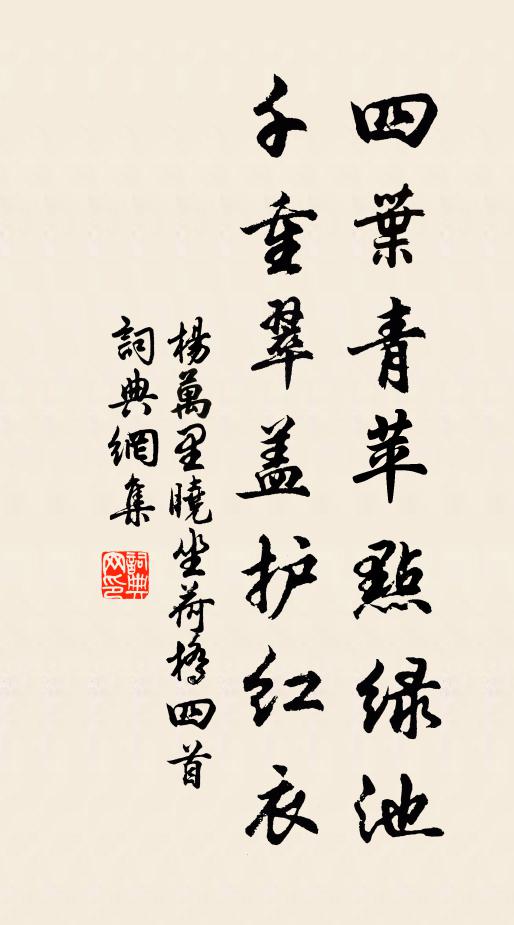 四葉青苹點绿池
千重翠盖护红衣
楊萬里曉坐荷橋四首
詞典網集
詞典網印